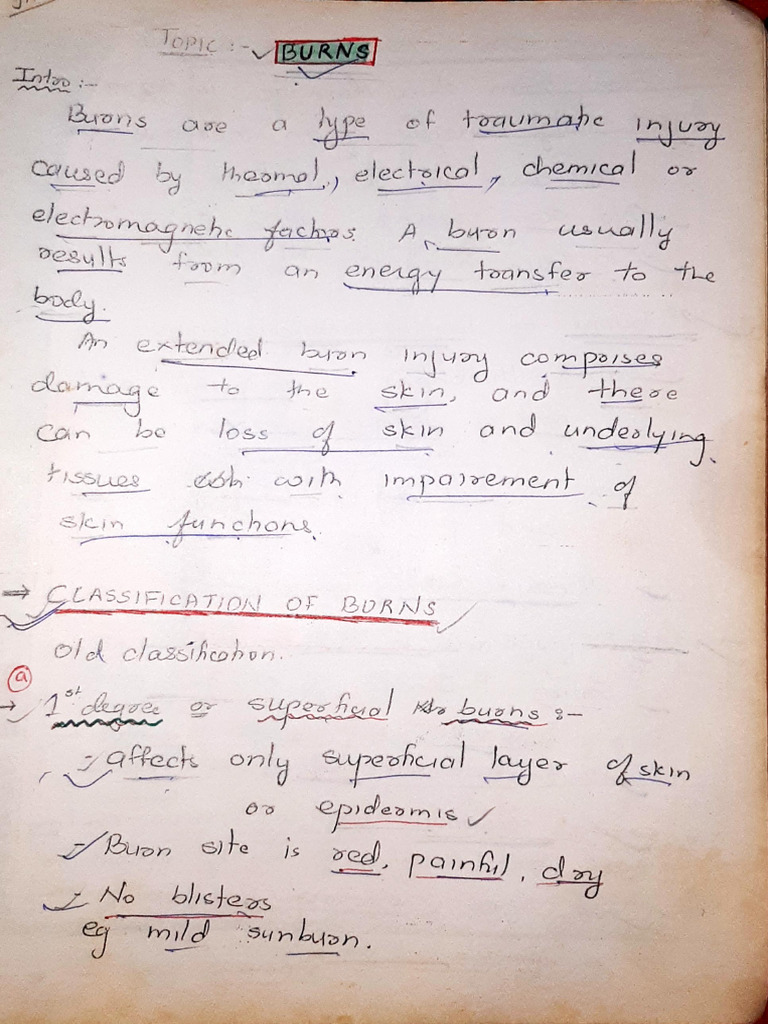 TOPIC :- BURNS
Intro :-
Burns are a type of traumatic injury
caused by thermal, electrical, chemical or
electromagnetic factors. A burn usually
results from an energy transfer to the
body.
An extended burn injury comprises
damage to the skin, and there
can be loss of skin and underlying
tissues with impairement of
skin functions.
⇒ CLASSIFICATION OF BURNS
Old classification.
a
→ 1st degree or superficial burns :-
- affects only superficial layer of skin
or epidermis
- Burn site is red, painful, dry
- No blisters
eg mild sunburn.